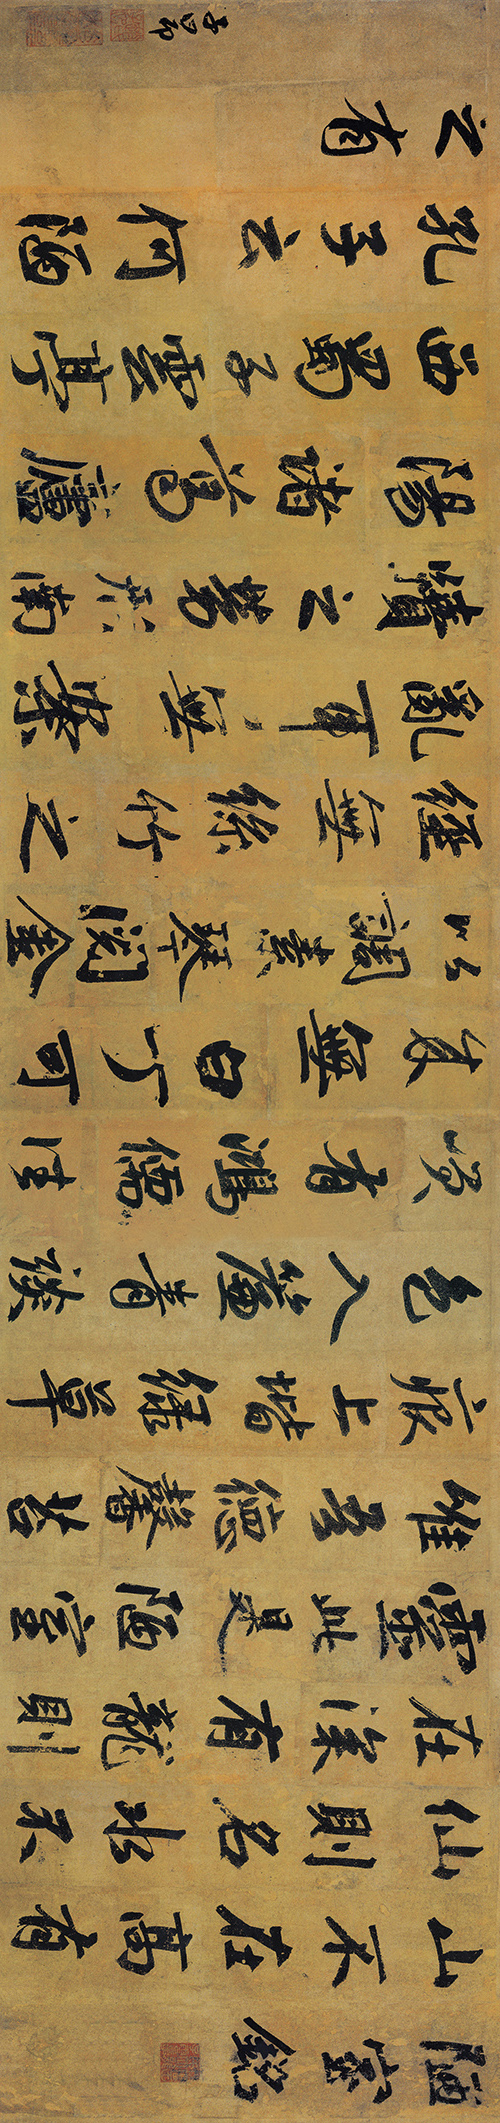 陋室銘
山不在高有
仙則名水不
在深有龍則
靈此是陋室
惟吾德馨苔
痕上堦緑草
色入簾青談
咲有鴻儒往
來無白丁可
以調素琴閱金
經無絲竹之
亂耳無案
牘之勞形南
陽諸葛廬
西蜀子雲亭
孔子云何陋
之有
子昂